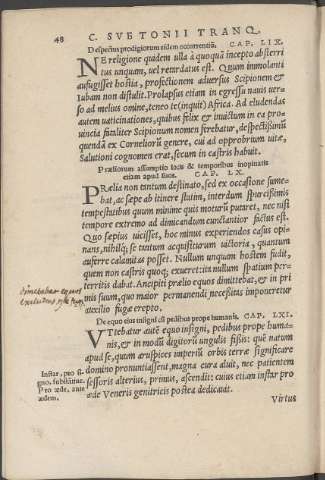 48 C. SVETONII TRANQ.
Despectus prodigiorum eidem occurrentia. CAP. LIX.
NE religione quidem ulla à quoquã incepto absterri
tus unquam, uel retardatus est. Quum immolanti
aufugisset hostia, profectionem aduersus Scipionem &
Iubam non distulit. Prolapsus etiam in egressu nauis uer-
so ad melius omine, teneo te (inquit) Africa. Ad eludendas
autem uaticinationes, quibus felix & inuictum in ea pro-
uincia fataliter Scipionum nomen ferebatur, despectissimũ
quendã ex Corneliorũ genere, cui ad opprobrium uitæ,
Salutioni cognomen erat, secum in castris habuit.
Præliorum assumptio locis & temporibus inopinatis
etiam apud suos. CAP. LX.
PRælia non tantum destinato, sed ex occasione sume-
bat, ac sæpe ab itinere statim, interdum spurcissimis
tempestatibus quum minime quis moturũ putaret, nec nisi
tempore extremo ad dimicandum cunctantior factus est.
Quo sæpius uicisset, hoc minus experiendos casus opi-
nans, nihilq; se tantum acquisiturum uictoria, quantum
auferre calamitas posset. Nullum unquam hostem fudit,
quem non castris quoq; exueret: ita nullum spatium per-
territis dabat. Ancipiti prælio equos dimittebat, & in pri
mis suum, quo maior permanendi necessitas imponeretur
auxilio fugæ erepto.
De equo eius insigni & pedibus prope humanis. CAP. LXI.
VTtebatur autẽ equo insigni, pedibus prope huma-
nis, & in modũ digitorũ ungulis fissis: quẽ natum
apud se, quum aruspices imperiũ orbis terræ significare
domino pronuntiassent, magna cura aluit, nec patientem
sessoris alterius, primus, ascendit: cuius etiam instar pro
æde Veneris genitricis postea dedicauit.
Virtus
Instar, pro si-
gno, subiũtiuæ.
Pro æde, ante
ædem.